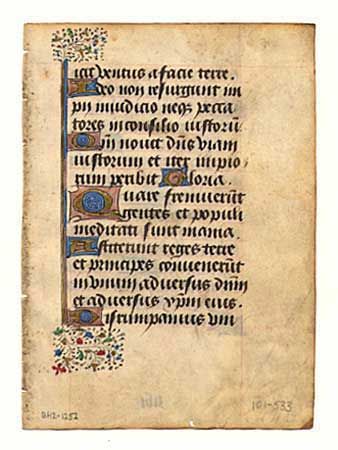 icit ventus a facie terre.
Ideo non resurgunt im
pii in iudicio neqz pecca
tores in consilio iustorū.
Qm̄ novit dn̄s viam
iustorum et iter impio
rum peribit Gloria.
Quare fremuerunt
gentes et populi
meditati sunt inania.
Astiterunt reges terre
et principes convenerūt
in unum adversus dn̄m
et adversus xp̄m eius.
Dirumpamus vin
101-533